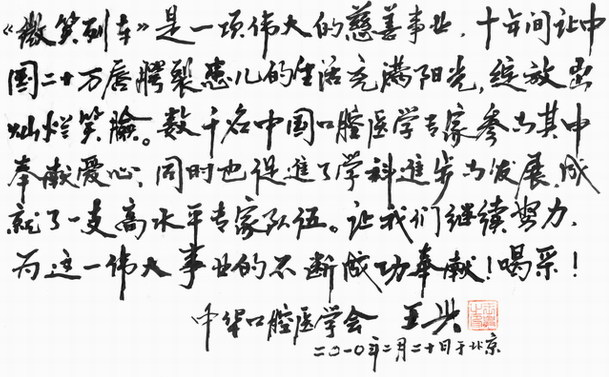 《微笑列车》是一项伟大的慈善事业，十年间让中
国二十万唇腭裂患儿的生活充满阳光，绽放出
灿烂笑脸。数千名中国口腔医学专家参与其中
奉献爱心，同时也促進了学科進步与发展，成
就了一支高水平专家队伍。让我们继续努力，
为这一伟大事业的不断成功奉献！喝采！
中华口腔医学会 王兴
二〇一〇年二月二十日于北京